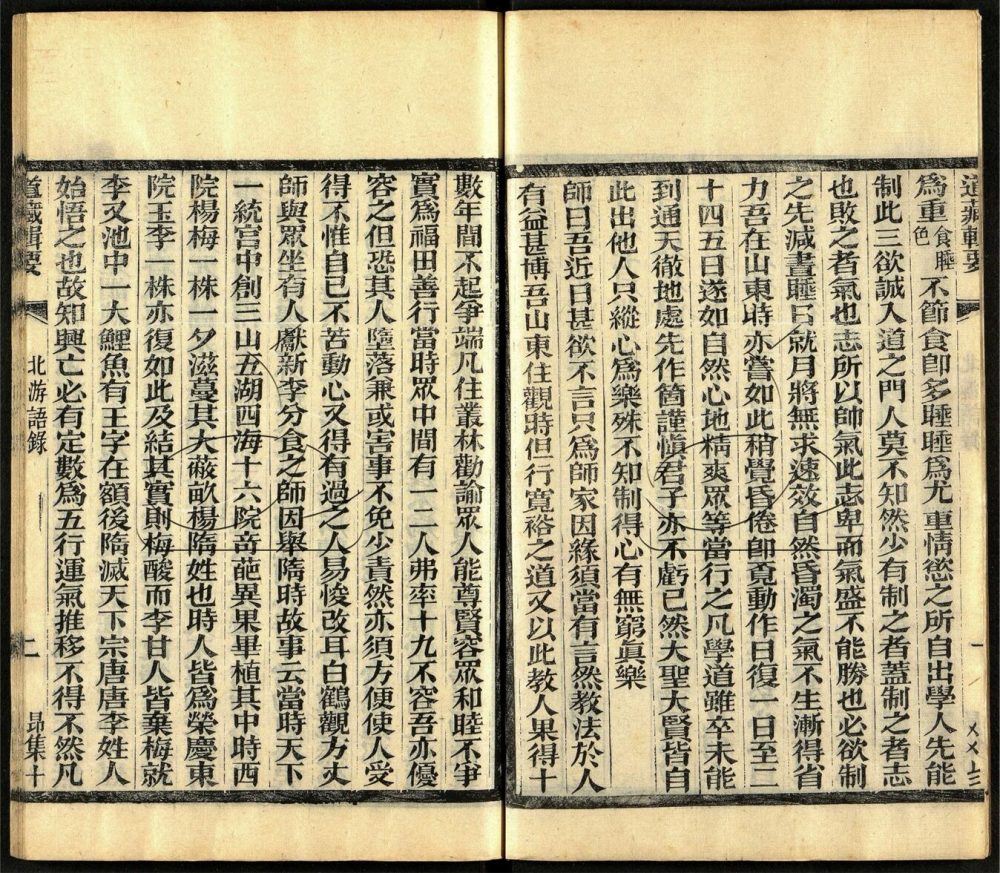 道藏輯要
為重食睡色不節食卽多睡睡爲尤重情慾之所自出學人先能
制此三欲誠入道之門人莫不知然少有制之者蓋制之者志
也敗之者氣也志所以帥氣此志卑而氣盛不能勝也必欲制
之先減晝睡日就月將無求速效自然昏濁之氣不生漸得省
力吾在山東時亦嘗如此稍覺昏倦卽覔動作日復一日至二
十四五日遂如自然心地精爽眾等當行之凡學道雖卒未能
到通天徹地處先作箇謹愼君子亦不虧已然大聖大賢皆自
此出他人只縱心爲樂殊不知制得心有無窮眞樂
師曰吾近日甚欲不言只爲師家因緣須當有言然教法於人
有益甚博吾山東住觀時但行寬裕之道又以此教人果得十
數年間不起爭端凡住叢林勸諭眾人能尊賢容眾和睦不爭
實爲福田善行當時眾中間有一二人弗率十九不容吾亦優
容之但恐其人墮落兼或害事不免少責然亦須方便使人愛
得不惟自已不苦動心又得有過之人易悛改耳白鶴觀方丈
師與眾坐有人獻新李分食之師因舉隋時故事云當時天下
一統宮中創三山五湖四海十六院奇葩異果畢植其中時西
院楊梅一株一夕滋蔓其大蔽畝楊隋姓也時人皆爲榮慶東
院玉李一株亦復如此及結其實則梅酸而李甘人皆棄梅就
李又池中一大鯉魚有王字在額後隋滅天下宗唐唐李姓人
始悟之也故知興亡必有定數爲五行運氣推移不得不然凡
道藏輯要
北游語錄
二
昴集十